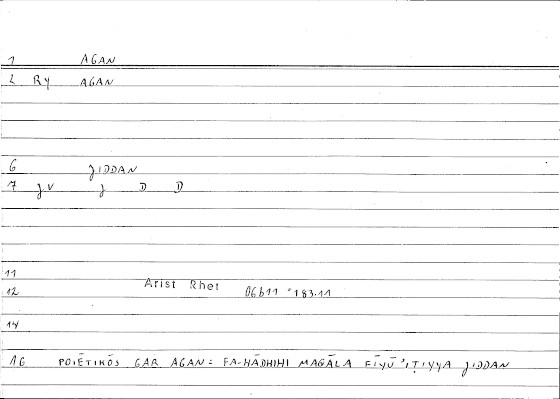 1 AGAN
2 Ry AGAN
6 JIDDAN
7 J.V J D D
11
12 Arist Rhet 06b11 °183.11
14
16 POIĒTIKŌS GAR AGAN: FA-HĀDHIHI MAGĀLA FĪYŪ'IṬIYYA JIDDAN